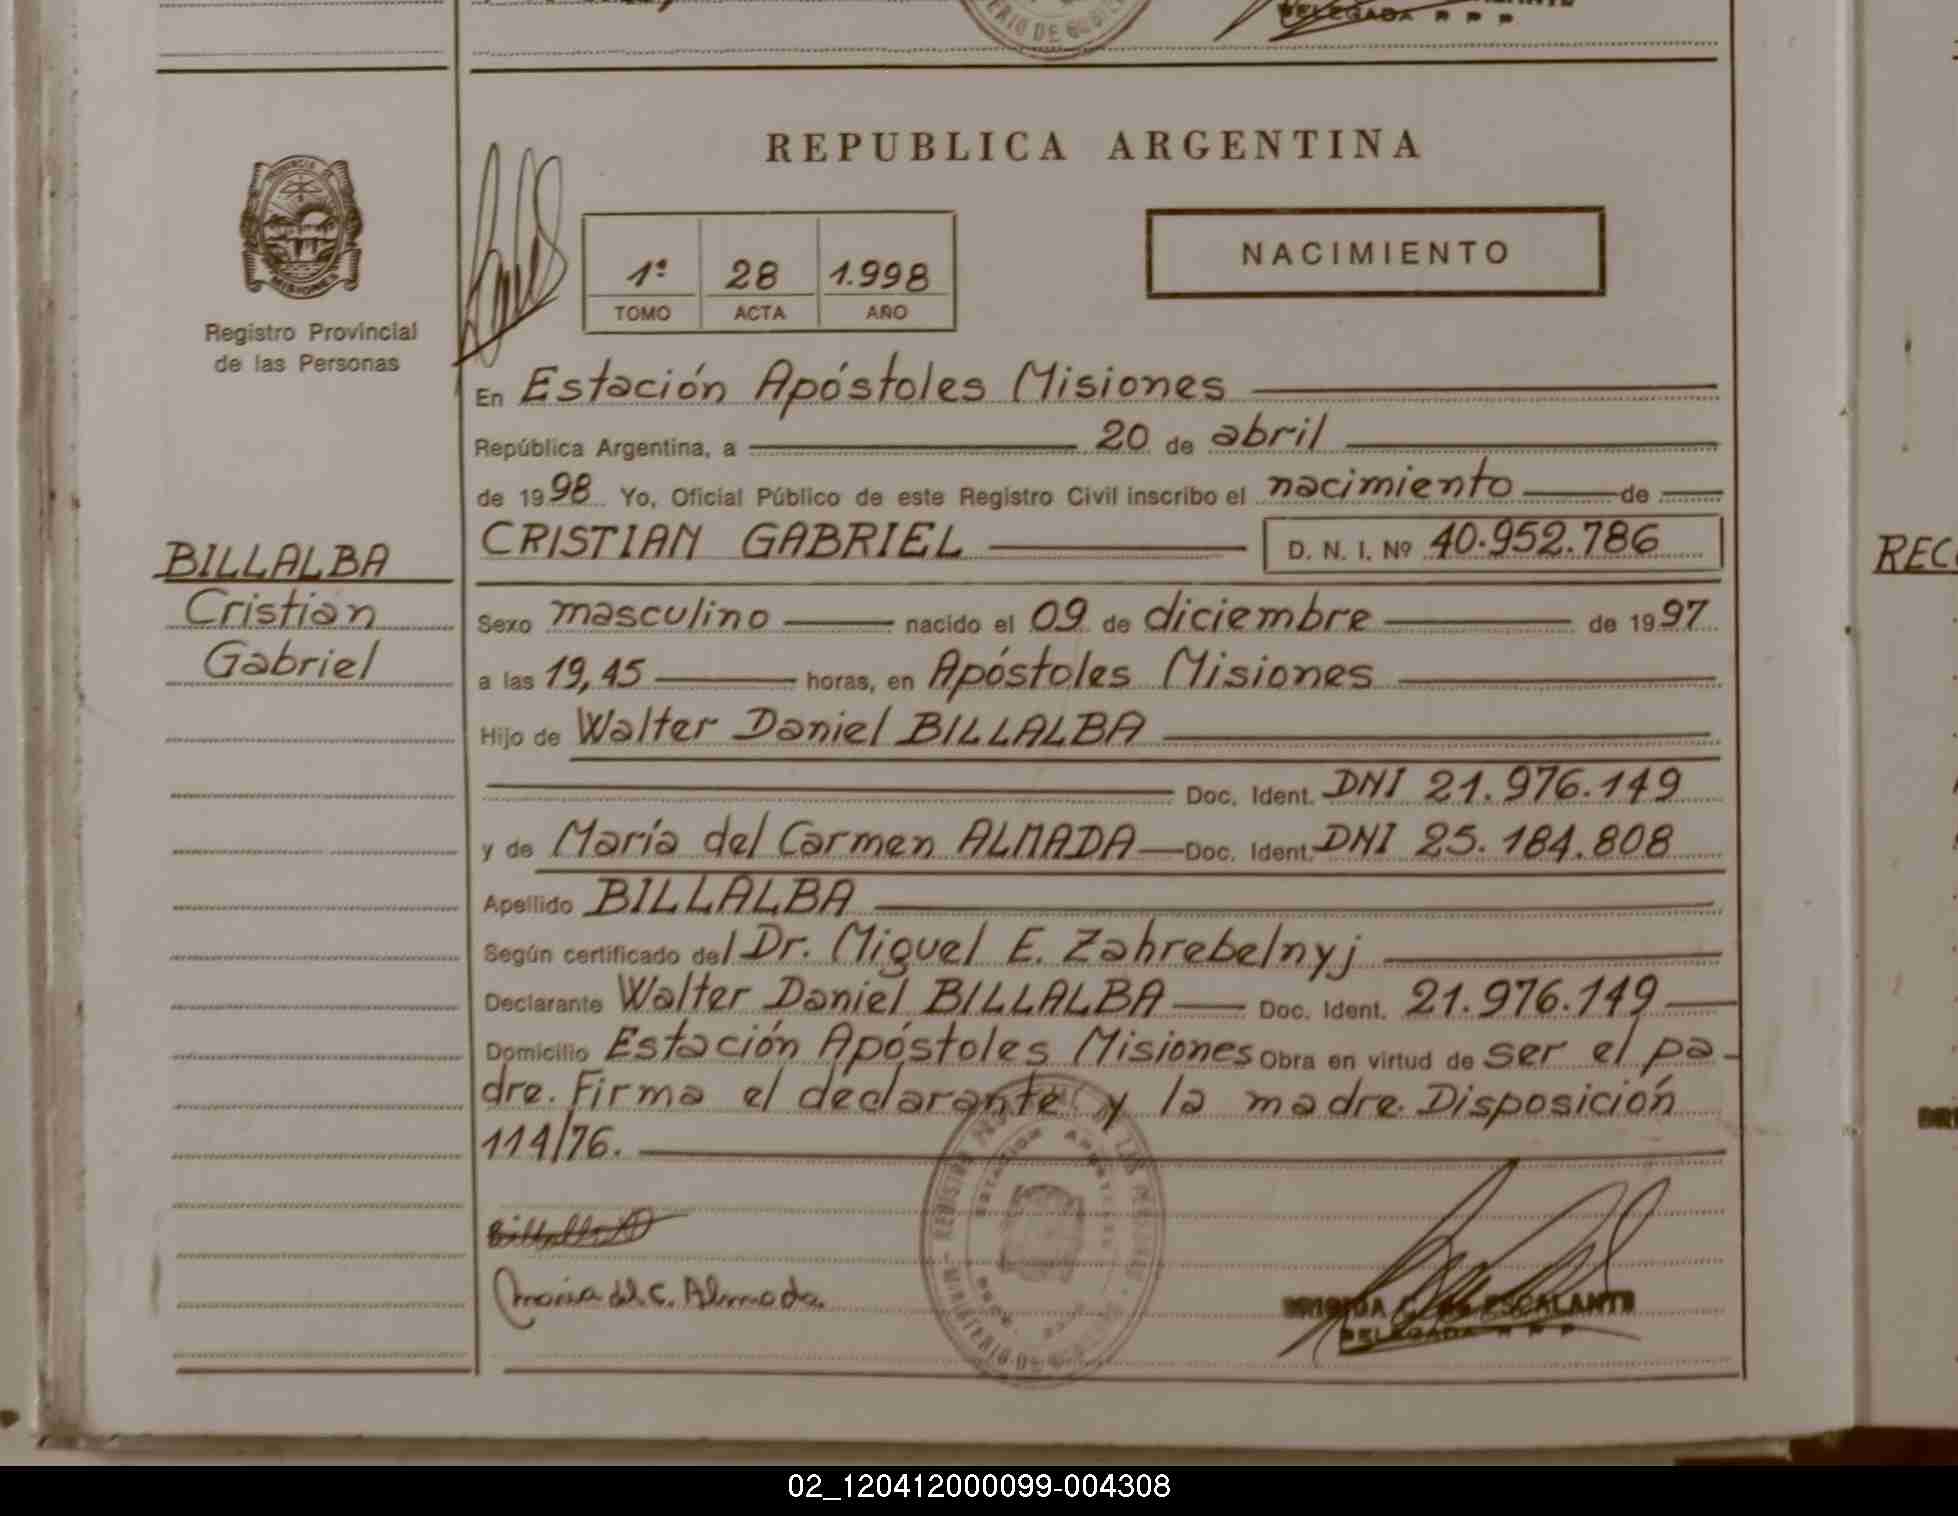 DELEGADA R P P
REPUBLICA ARGENTINA
PROVINCIA DE
MISIONES
Registro Provincial
de las Personas
1º 28 1.998
TOMO ACTA AÑO
NACIMIENTO
En Estación Apóstoles Misiones
República Argentina, a 20 de abril
de 1998 Yo, Oficial Público de este Registro Civil inscribo el nacimiento de
BILLALBA
Cristian
Gabriel
CRISTIAN GABRIEL D. N. I. Nº 40.952.786
Sexo masculino nacido el 09 de diciembre de 1997
a las 19,45 horas, en Apóstoles Misiones
Hijo de Walter Daniel BILLALBA
Doc. Ident. DNI 21.976.149
y de María del Carmen ALMADA Doc. Ident. DNI 25.184.808
Apellido BILLALBA
Según certificado del Dr. Miguel E. Zahrebelnyj
Declarante Walter Daniel BILLALBA Doc. Ident. 21.976.149
Domicilio Estación Apóstoles Misiones Obra en virtud de ser el pa-
dre. Firma el declarante y la madre. Disposición
114/76.
Maria del C. Almada.
BRIGIDA C. de ESCALANTE
DELEGADA R P P
REC
02_120412000099-004308